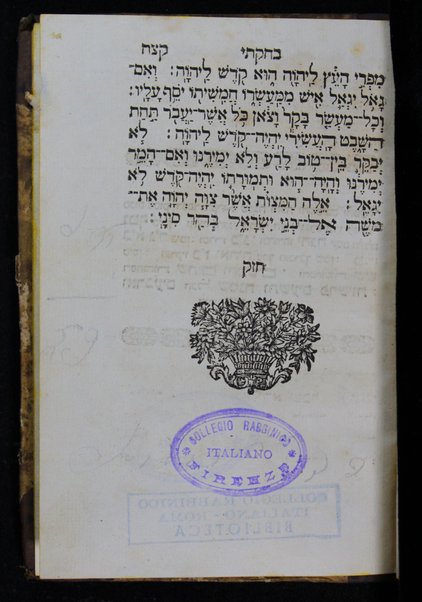 בחקתי קצח
מִפְּרִי הָעֵץ לַיהוָה הוּא קֹדֶשׁ לַיהוָה׃ וְאִם־
גָּאֹל יִגְאַל אִישׁ מִמַּעַשְׂרוֹ חֲמִשִׁיתוֹ יֹסֵף עָלָיו׃
וְכָל־מַעְשַׂר בָּקָר וָצֹאן כֹּל אֲשֶׁר־יַעֲבֹר תַּחַת
הַשָּׁבֶט הָעֲשִׂירִי יִהְיֶה־קֹּדֶשׁ לַיהוָה׃ לֹא
יְבַקֵּר בֵּין־טוֹב לָרַע וְלֹא יְמִירֶנּוּ וְאִם־הָמֵר
יְמִירֶנּוּ וְהָיָה־הוּא וּתְמוּרָתוֹ יִהְיֶה־קֹּדֶשׁ לֹא
יִגָּאֵל׃ אֵלֶּה הַמִּצְוֹת אֲשֶׁר צִוָּה יְהוָה אֶת־
מֹשֶׁה אֶל־בְּנֵי יִשְׂרָאֵל בְּהַר סִינָי׃
חזק
COLLEGIO RABBINICO
ITALIANO
FIRENZE
COLLEGIO RABBINICO
ITALIANO - ROMA
BIBLIOTECA